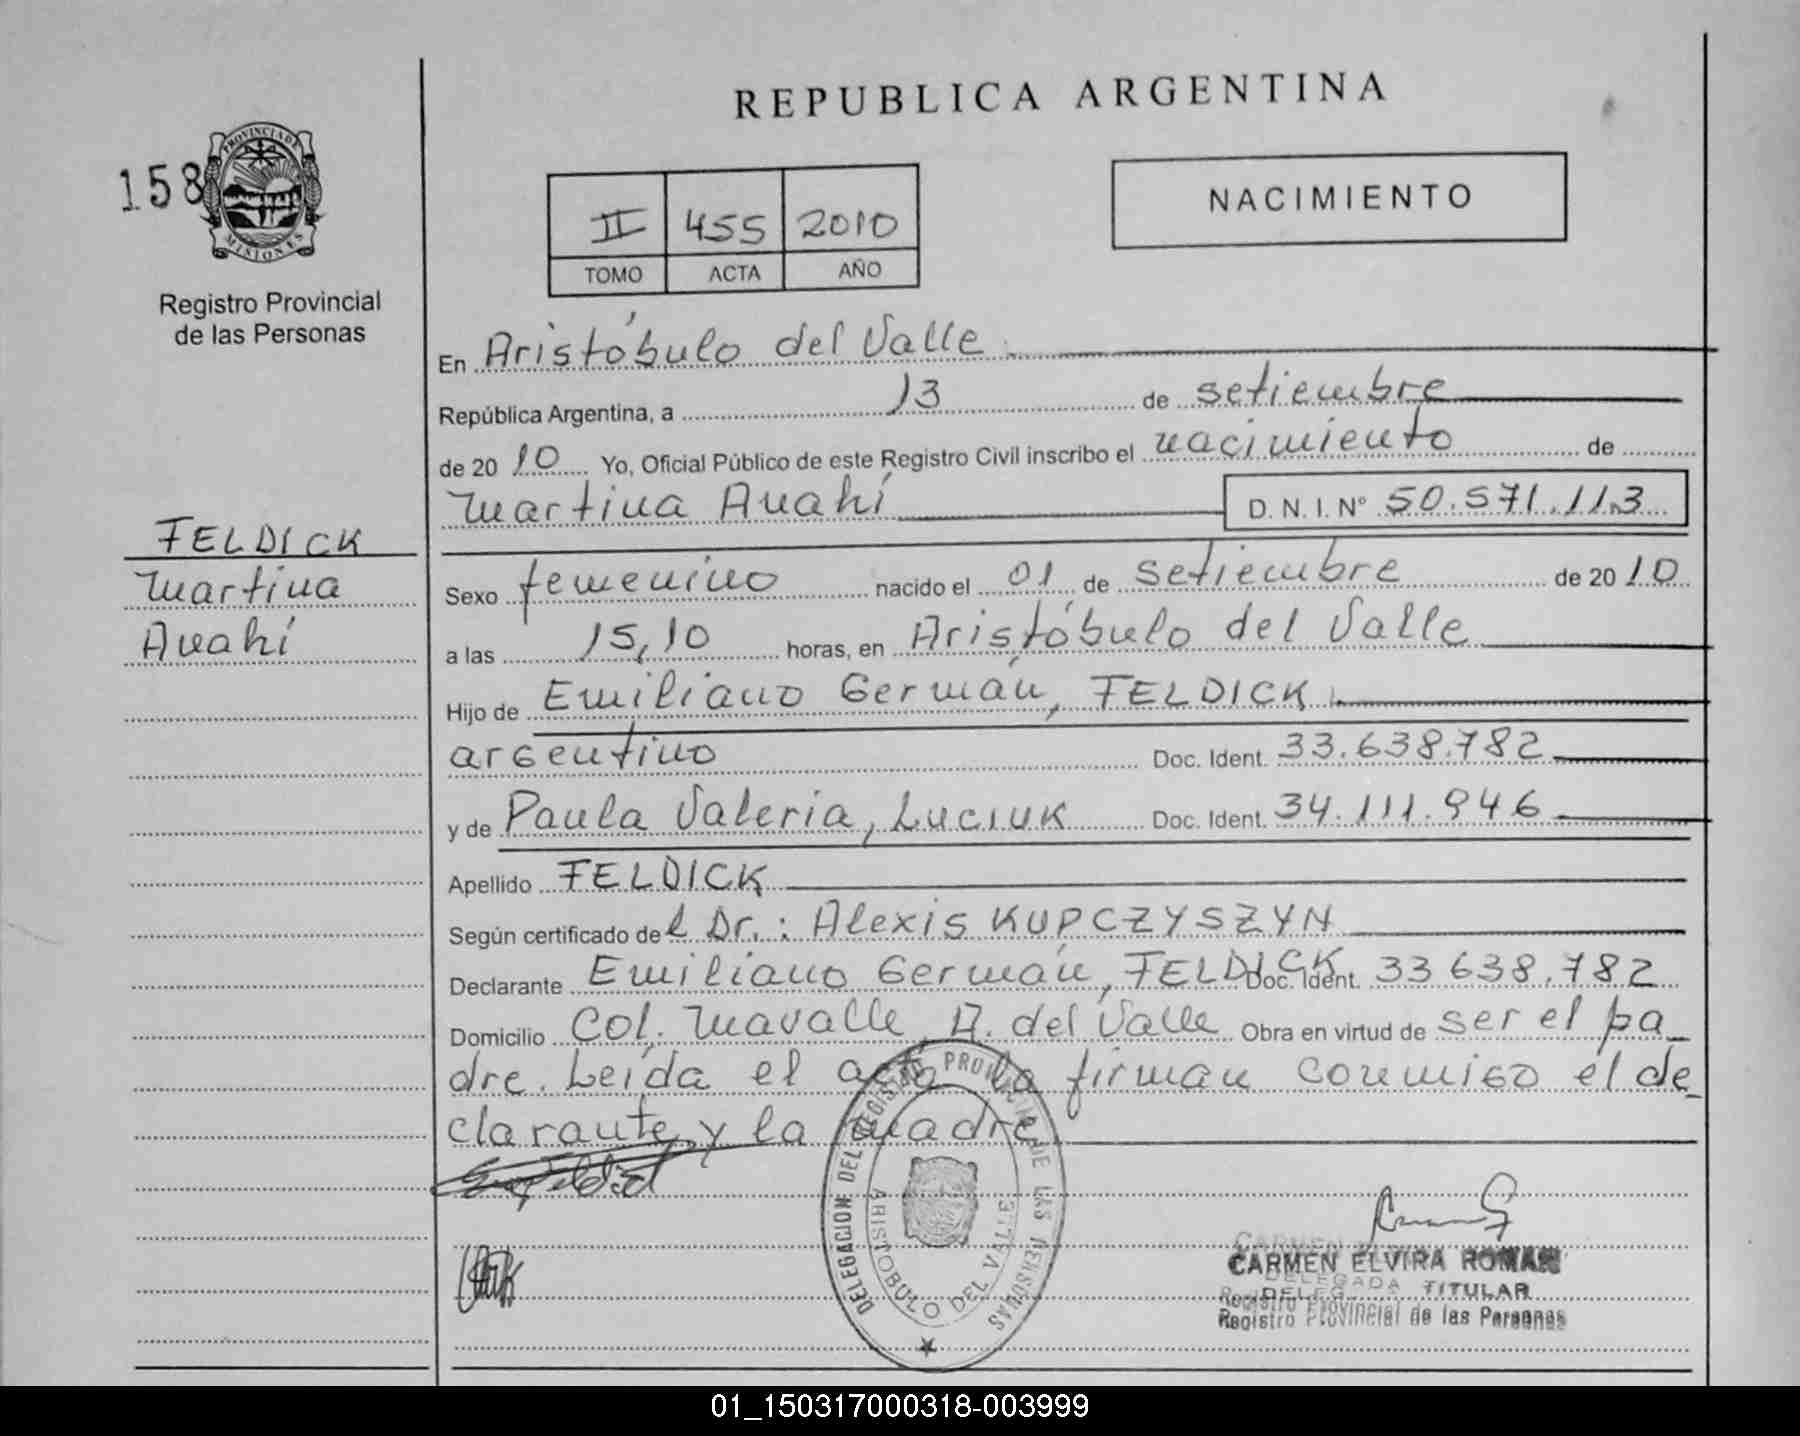 REPUBLICA ARGENTINA
158
PROVINCIA DE
MISIONES
Registro Provincial
de las Personas
II 455 2010
TOMO ACTA AÑO
NACIMIENTO
En Aristóbulo del Valle
República Argentina, a 13 de setiembre
de 2010 Yo, Oficial Público de este Registro Civil inscribo el nacimiento de
Martina Anahí D. N. I. Nº 50.571.113
FELDICK
Martina
Anahí
Sexo femenino nacido el 01 de setiembre de 2010
a las 15,10 horas, en Aristóbulo del Valle
Hijo de Emiliano Germán, FELDICK
argentino Doc. Ident. 33.638.782
y de Paula Valeria, Luciuk Doc. Ident. 34.111.946
Apellido FELDICK
Según certificado del Dr.: Alexis KUPCZYSZYN
Declarante Emiliano Germán, FELDICK Doc. Ident. 33.638.782
Domicilio Col. Mavalle A. del Valle Obra en virtud de ser el pa_
dre. Leída el acta la firman conmigo el de_
clarante y la madre
DELEGACION DEL REGISTRO PROVINCIAL DE LAS PERSONAS
ARISTOBULO DEL VALLE
CARMEN ELVIRA ROMAN
DELEGADA TITULAR
Registro Provincial de las Personas
01_150317000318-003999